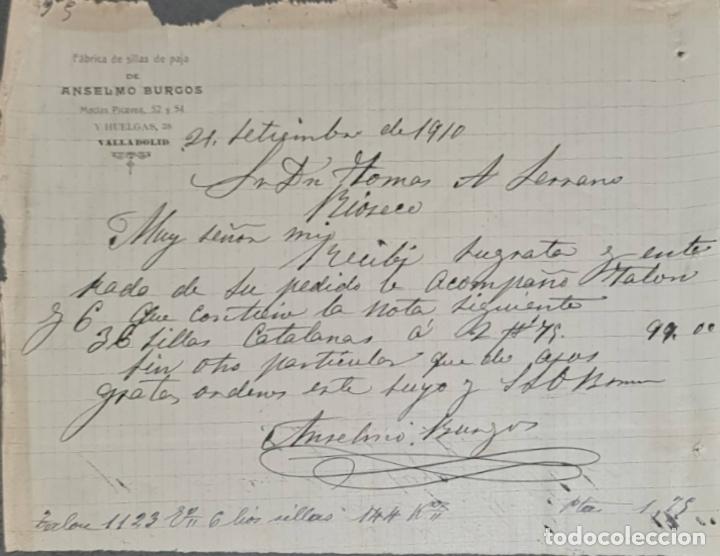 Fábrica de sillas de paja
DE
ANSELMO BURGOS
Macías Picavea, 52 y 54
Y HUELGAS, 28
VALLADOLID
21, Setiembre de 1910
Sr Dn Tomas A Serrano
Rioseco
Muy señor mio
Recibi su grata y ente
rado de su pedido le acompaño Talon
y 6 que contiene la nota siguiente
36 sillas Catalanas á 2 75. 99.00
sin otro particular que de a sus
gratas ordenes este suyo y
Anselmo Burgos
Talon 1123 6 lios sillas 144 K ptas 1,25
todocoleccion